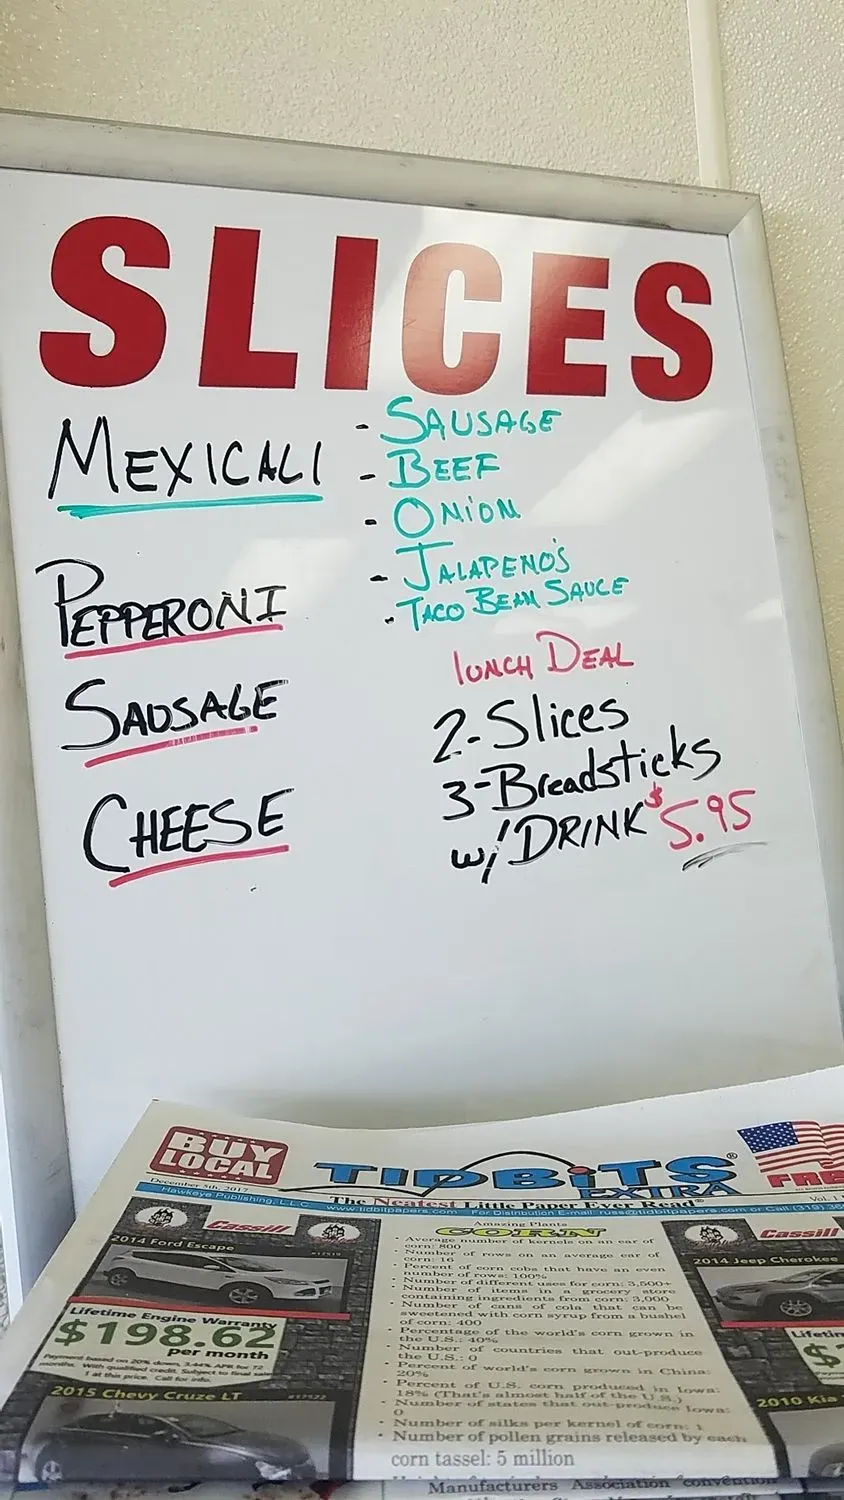 SLICES
MEXICALI
- SAUSAGE
- BEEF
- ONION
- JALAPENO'S
- TACO BEAN SAUCE
PEPPERONI
SAUSAGE
CHEESE
LUNCH DEAL
2-Slices
3-Breadsticks
w/DRINK $5.95
BUY LOCAL
TIDBITS®
EXTRA
December 5th, 2017
Hawkeye Publishing, L.L.C.
The Neatest Little Paper Ever Read®
www.tidbitpapers.com For Distribution E-mail: russ@tidbitpapers.com or Call (319)
Vol. 1
Cassill
2014 Ford Escape
Lifetime Engine Warranty
$198.62
per month
Payment based on 20% down, 3.44% APR for 72
months. With qualified credit. Subject to final sale
1 at this price. Call for info.
2015 Chevy Cruze LT
Amazing Plants
CORN
• Average number of kernels on an ear of
corn: 800
• Number of rows on an average ear of
corn: 16
• Percent of corn cobs that have an even
number of rows: 100%
• Number of different uses for corn: 3,500+
• Number of items in a grocery store
containing ingredients from corn: 3,000
• Number of cans of cola that can be
sweetened with corn syrup from a bushel
of corn: 400
• Percentage of the world's corn grown in
the U.S.: 40%
• Number of countries that out-produce
the U.S.: 0
• Percent of world's corn grown in China:
20%
• Percent of U.S. corn produced in Iowa:
18% (That's almost half of the U.S.)
• Number of states that out-produce Iowa:
0
• Number of silks per kernel of corn: 1
• Number of pollen grains released by each
corn tassel: 5 million
Manufacturers Association convention
Cassill
2014 Jeep Cherokee
Lifetim
$
2010 Kia